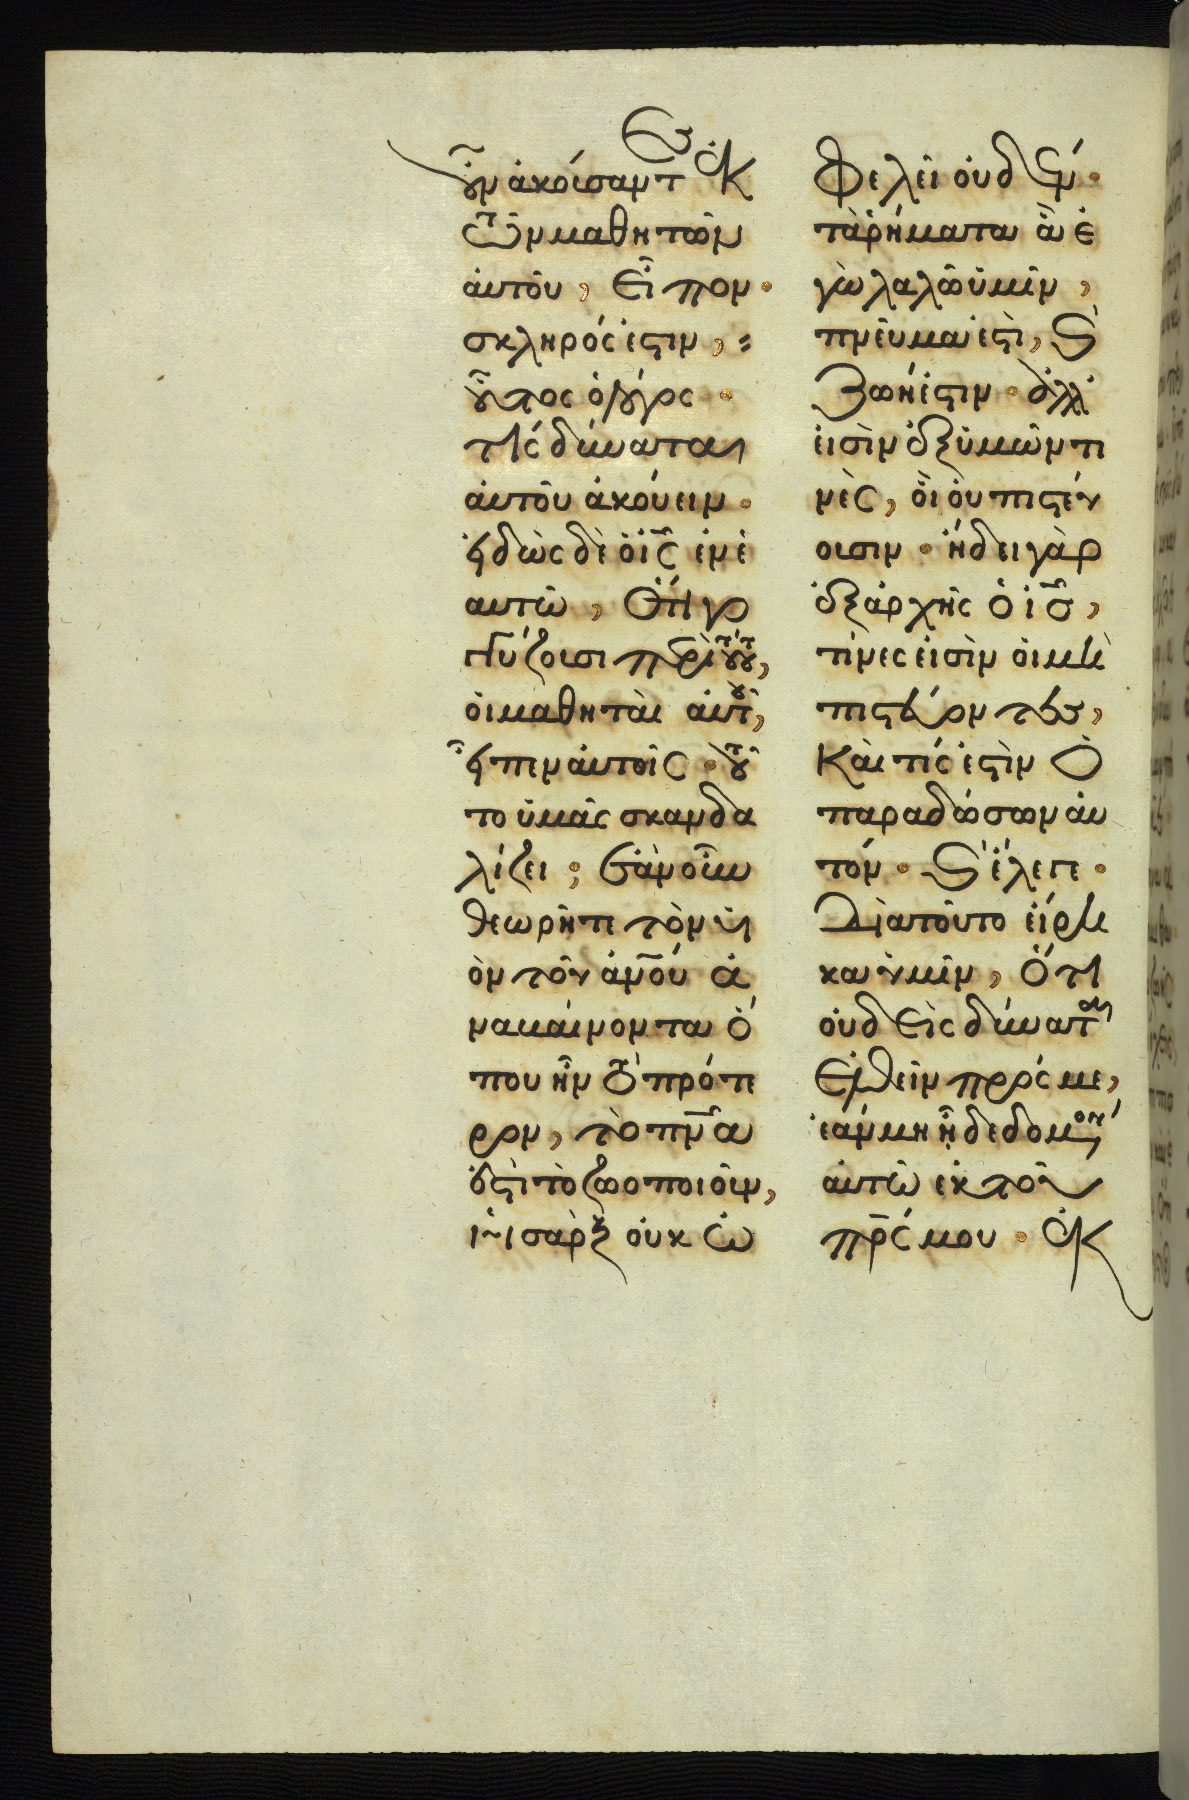 οὖν ἀκούσαντες ἐκ
τῶν μαθητῶν
ἀυτοῦ, εἶπον·
σκληρός ἐστιν,
οὗτος ὁ λόγος·
τίς δύναται
ἀυτοῦ ἀκούειν·
εἰδὼς δὲ ὁ ἰς ἐν ἑ
αυτῶ, ὅτι γο
γγύζουσι περὶ τούτου,
ὁι μαθηταὶ ἀυτοῦ,
εἶπεν ἀυτοῖς· τοῦ
το ὑμᾶς σκανδα
λίζει; ἐὰν οὖν
θεωρῆτε τὸν υἱ
ὸν τοῦ ἀνου ἀ
ναβαίνοντα ὅ
που ἦν τὸ πρότε
ρον, τὸ πνα
ἐστὶ τὸ ζωοποιοῦν,
ἡ σὰρξ ὀυκ ὠ
φελεῖ ὀυδέν·
τὰ ῥήματα ἃ ἐ
γὼ λαλῶ ὑμῖν,
πνεῦμα ἐστὶ, καὶ
ζωή ἐστιν· ἀλλ'
εἰσὶν ἐξ ὑμῶν τι
νὲς, ὃι ὀυ πιστεύ
ουσιν· ἤδει γὰρ
ἐξ ἀρχῆς ὁ ις,
τίνες εἰσὶν ὁι μὴ
πιστεύοντες,
καὶ τίς ἐστὶν ὁ
παραδώσων ἀυ
τόν· καὶ ἔλεγε·
διὰ τοῦτο εἴρη
κα ὑμῖν, ὅτι
ὀυδεὶς δύναται
ἐλθεῖν πρός με,
ἐὰν μὴ ἦ δεδομένον
ἀυτῶ ἐκ τοῦ
πρς μου· ἐκ